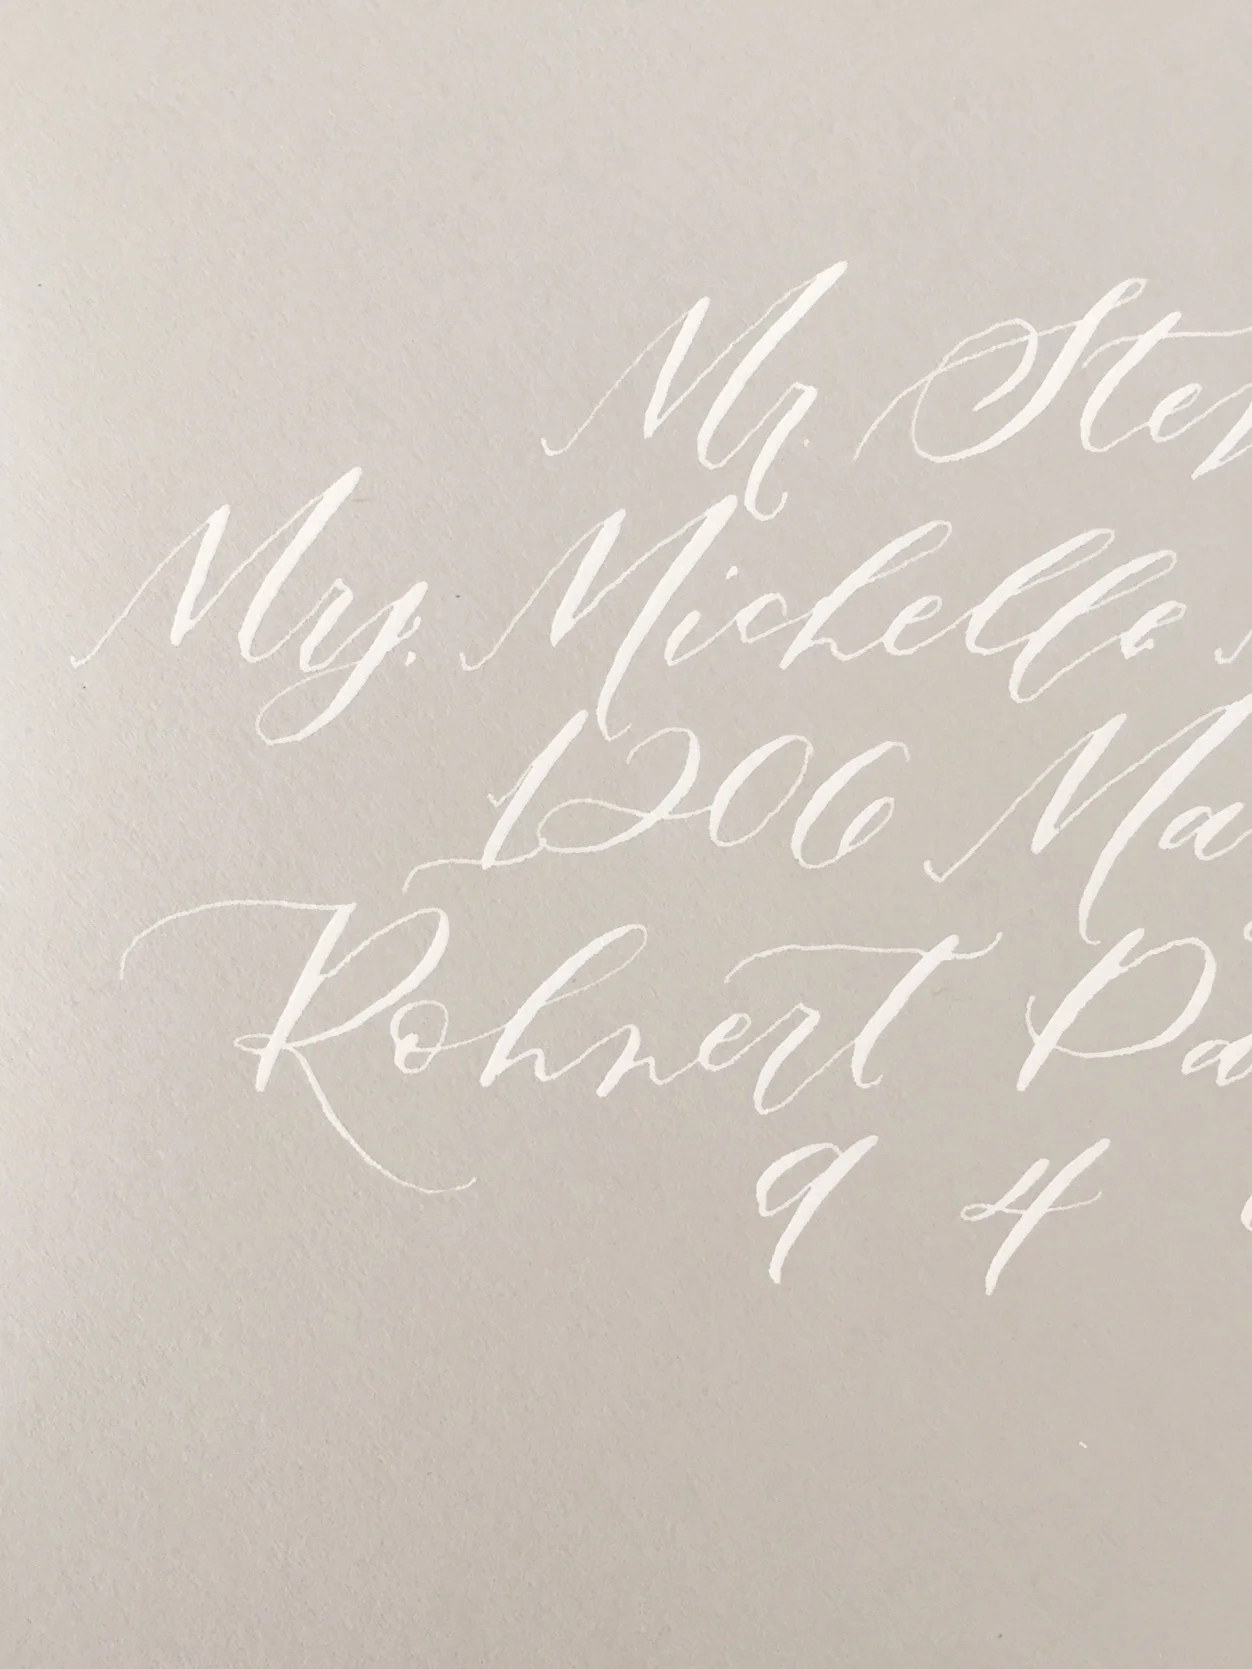 Mr. Stev
Mrs. Michelle
1206 Ma
Rohnert Pa
9 4